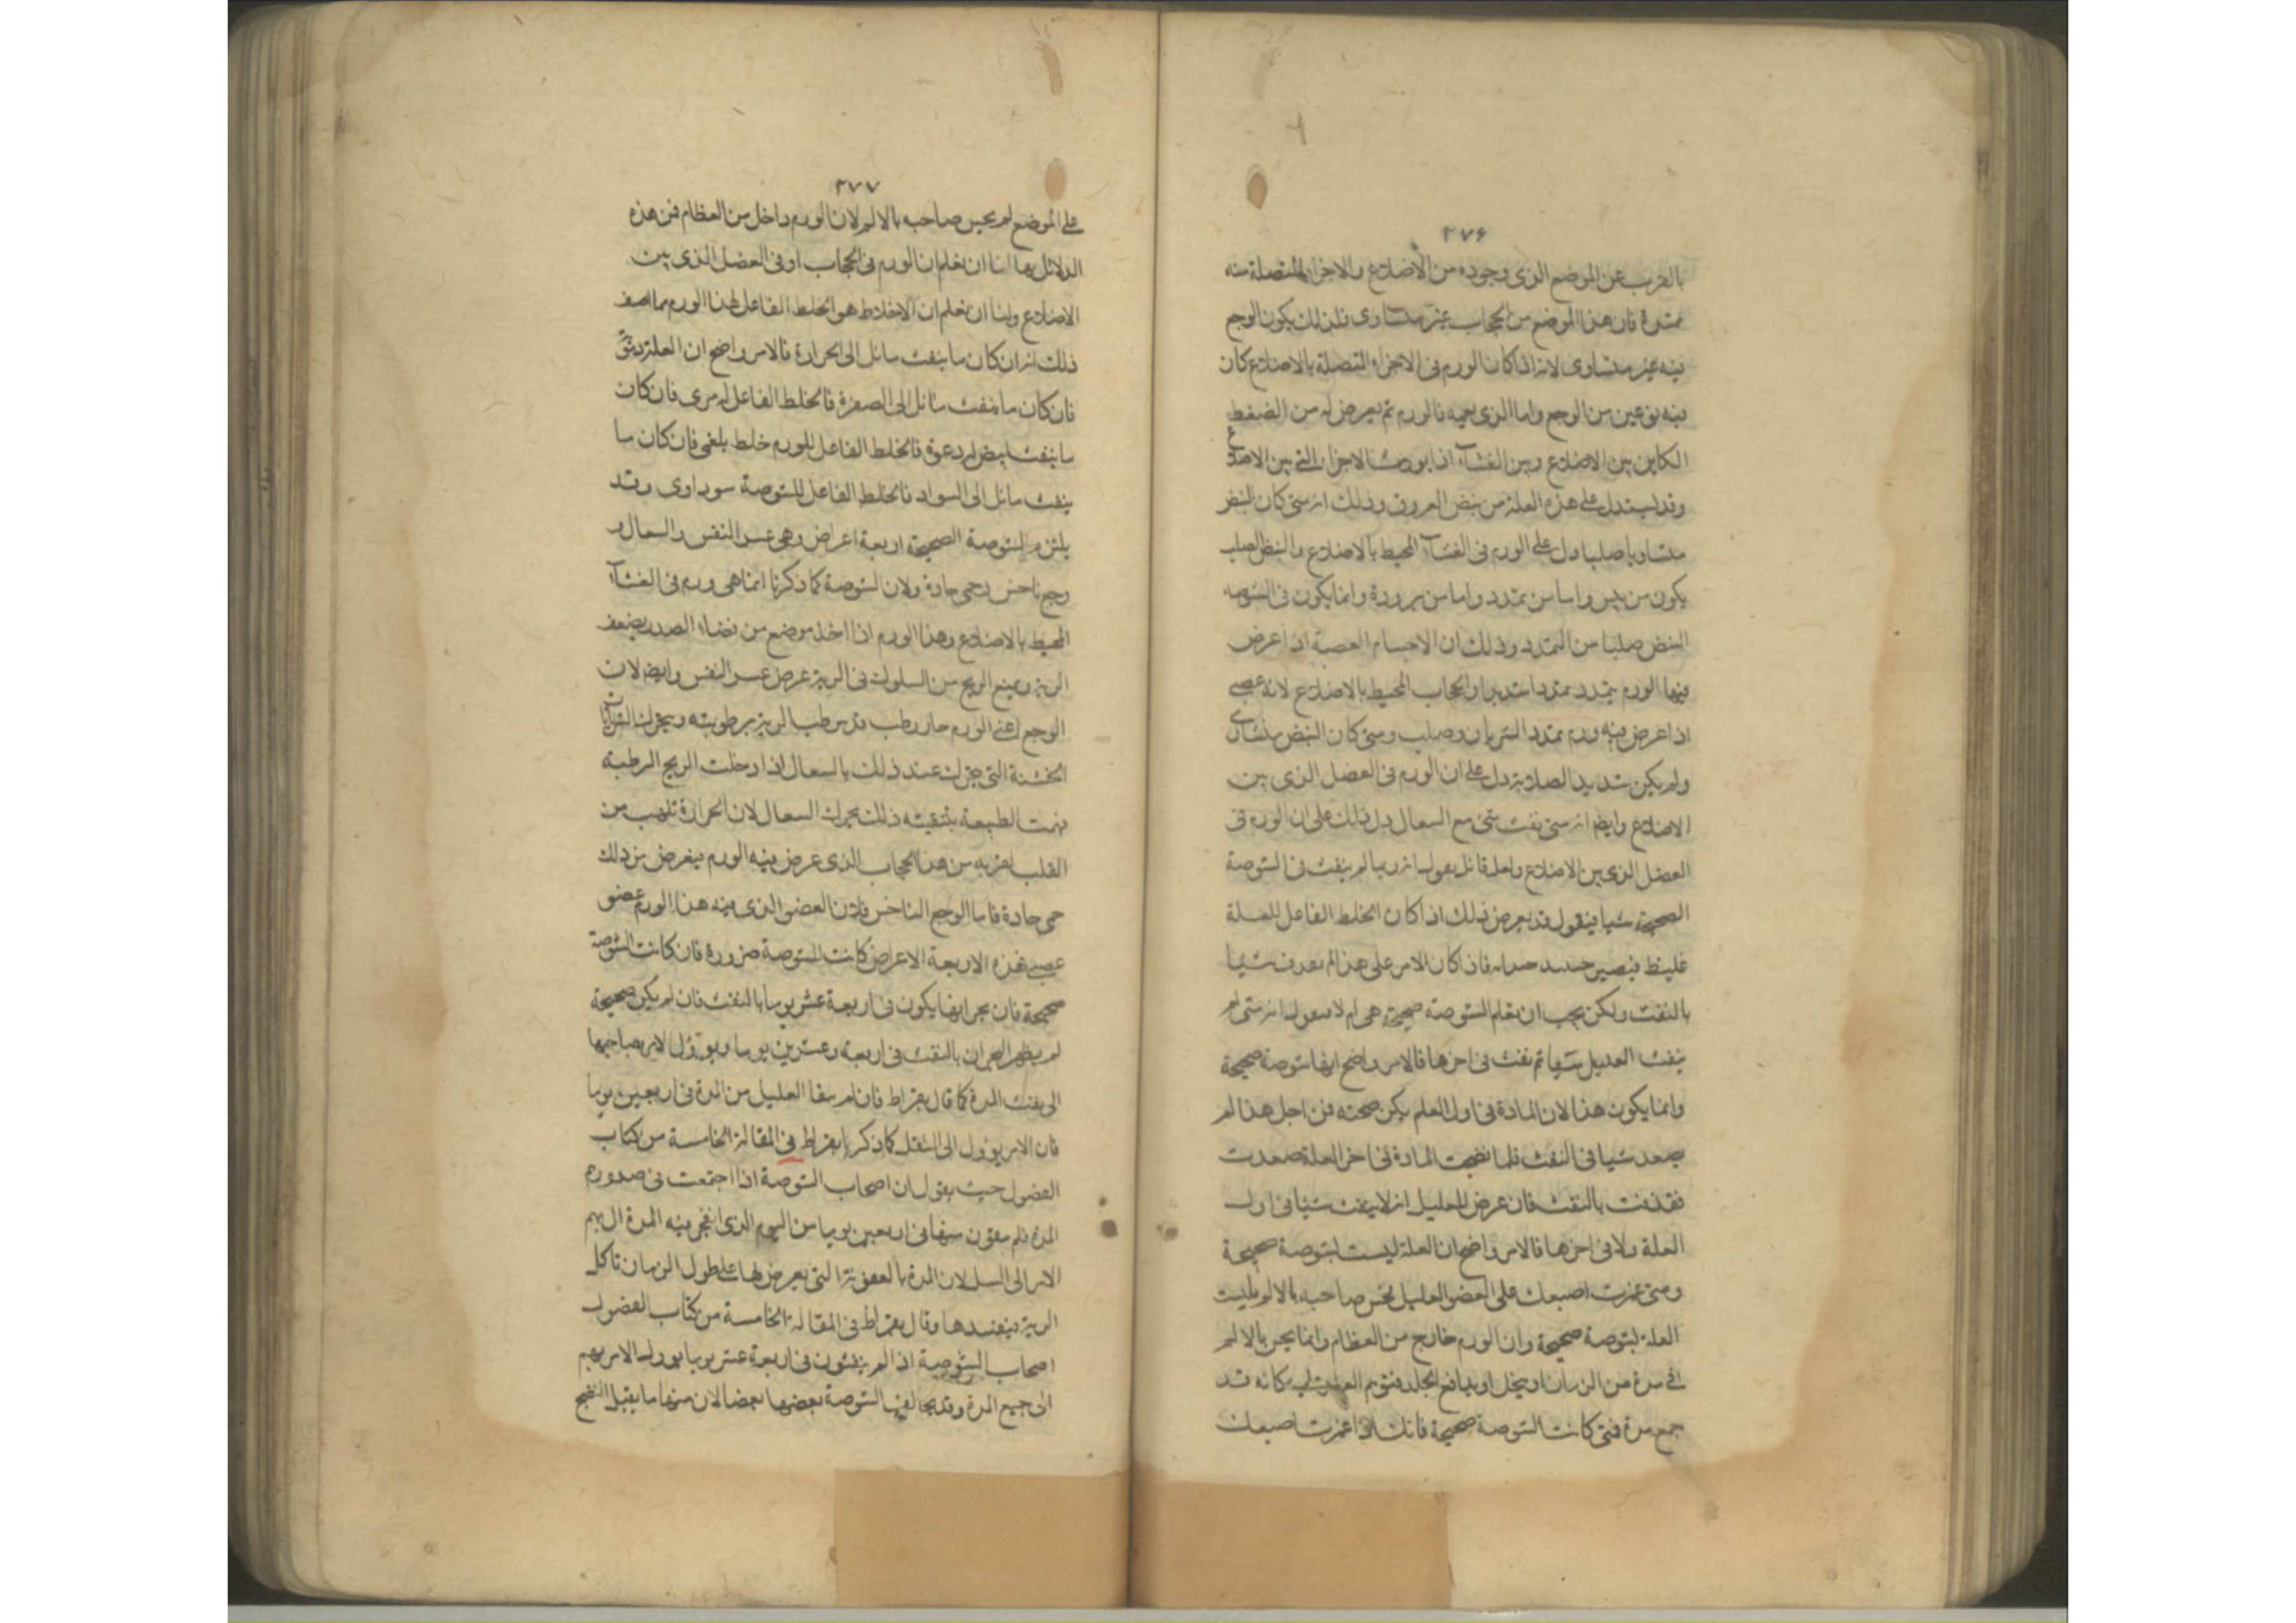 ٢٧۶
بالقرب عن الموضع الذى وجوده من الأضلاع والاجزا المتصلة منه
ممتدة فان هذا الموضع من الحجاب غير متساوى فلذلك يكون الوجع
فيه غير متساوى لانه اذا كان الورم فى الاجزاء المتصلة بالاضلاع كان
فيه نوعين من الوجع واما الذى يعمه فالورم ثم يعرض له من الضغط
الكاين بين الاضلاع وبين الغشاء اذا تورمت الاجزا التى بين الاضلاع
وقد يستدل على هذه العلة من نبض العروق وذلك انه متى كان النبض
متساويا صلبا دل على الورم فى الغشاء المحيط بالاضلاع والنبض الصلب
يكون من يبس واما من تمدد واما من برودة وانما يكون فى الشوصه
النبض صلبا من التمدد وذلك ان الاجسام العصبة اذا عرض
فيها الورم يتمدد تمددا شديدا والحجاب المحيط بالاضلاع لانه عصبى
اذا عرض فيه ورم تمدد الشريان وصلب ومتى كان النبض منشارى
ولم يكن شديد الصلابة دل على ان الورم فى العضل الذى بين
الاضلاع وايضا انه متى نفث شى مع السعال دل ذلك على ان الورم فى
العضل الذى بين الاضلاع ولعل قائل يقول انه ربما لم ينفث فى الشوصة
الصحيحة شيا فيقول قد يعرض ذلك اذا كان الخلط الفاعل للعلة
غليظ فيصير فاذا كان الامر على هذا لم يقذف شيا
بالنفث ولكن يجب ان نعلم الشوصة صحيحة هى ام لا فيقول انه متى لم
ينفث العليل شيا ثم نفث فى اخرها فالامر واضح انها شوصة صحيحة
وانما يكون هذا لان المادة فى اول العلم يكن صحته فمن اجل هذا لم
يصعد شيا فى النفث فلما نضجت المادة فى اخر العلة صعدت
فقذفت بالنفث فان عرض للعليل انه لا ينفث شيا فى اول
العلة ولا فى اخرها فالامر واضح ان العلة ليست بشوصة صحيحة
ومتى غمزت اصبعك على العضو العليل نخس صاحبه بالالم فليست
العلة بشوصة صحيحة وان الورم خارج من العظام وانما يحس بالالم
فى مدة من الزمان او يخل او يدافع الجلد فتوهم كانه قد
جمع مدة فمتى كانت الشوصة صحيحة فانك اذا غمزت اصبعك
٢٧٧
على الموضع لم يحس صاحبه بالالم لان الورم داخل من العظام فمن هذه
الدلايل لنا ان نعلم ان الورم فى الحجاب او فى العضل الذى بين
الاضلاع ولنا ان نعلم ان الاخلاط هو الخلط الفاعل لهذا الورم مما اصف
ذلك انه ان كان ما ينفث مائل الى الحرارة فالامر واضح ان العلة دموى
فان كان ما ينفث مائل الى الصفرة فالخلط الفاعل له مرى فان كان
ما ينفث ابيض له دعوة فالخلط الفاعل للورم خلط بلغمى فان كان ما
ينفث مائل الى السواد فالخلط الفاعل للشوصة سوداوى وقد
يلتزم الشوصة الصحيحة اربعة اعراض وهى عسر النفس والسعال و
وجع ناخس وحمى حادة ولان الشوصة كما ذكرنا انما هى ورم فى الغشاء
المحيط بالاضلاع وهذا الورم اذا اخذ موضع من فضاء الصدر يضغط
الرية ويمنع الريح من السلوك فى الرية عرض عسر النفس وايضا لان
الوجع اعنى الورم حار رطب قد رطب الرية برطوبته ويحرك الشريان
الخشنة التى تتحرك عند ذلك بالسعال اذا دخلت الريح الرطبة
فهمت الطبيعة بتنقيته ذلك تحرك السعال لان الحرارة تلهب من
القلب لقربه من هذا الحجاب الذى عرض فيه الورم فيعرض من ذلك
حمى حادة فاما الوجع الناخس فلان العضو الذى فيه هذا الورم عضو
عصبى فهذه الاربعة الاعراض كانت للشوصة ضرورة فان كانت الشوصة
صحيحة فان بحرانها يكون فى اربعة عشر يوما بالنفث فان لم يكن صحيحة
لم يظهر البحران بالنفث فى اربعة وعشرين يوما ويؤول الامر بصاحبها
الى نفث المدة كما قال بقراط فان لم ينقا العليل من المدة فى اربعين يوما
فان الامر يؤول الى الثقل كما ذكر بقراط فى المقالة الخامسة من كتاب
الفصول حيث يقول ان اصحاب الشوصة اذا اجتمعت فى صدورهم
المدة فلم ينقون منها فى اربعين يوما من اليوم الذى انفجر فيه المدة ال بهم
الامر الى السل لان المدة بالعفونة التى يعرض لها على طول الزمان تاكل
الرية فيفسدها وقال بقراط فى المقالة الخامسة من كتاب الفصول
اصحاب الشوصة اذا لم ينقون فى اربعة عشر يوما يؤول الامر بهم
الى جمع المدة وقد يخالف الشوصة بعضها بعضا لان منها ما يقبل النضج